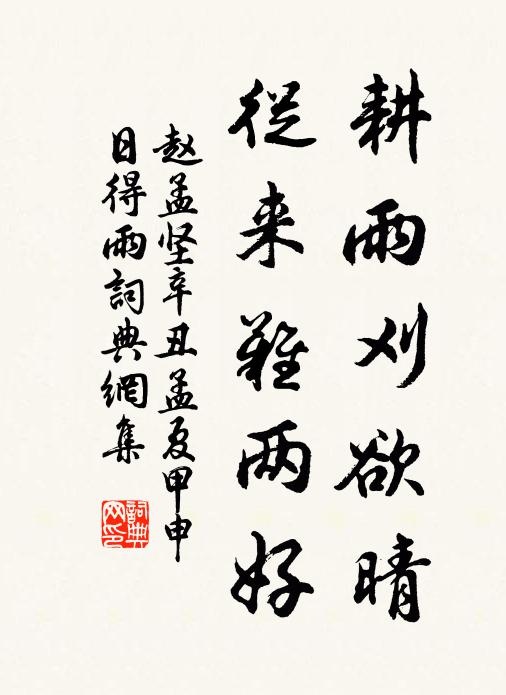 耕雨刈欲晴
從来難两好
赵孟坚辛丑孟夏甲申
日得雨詞典網集
詞典
网印